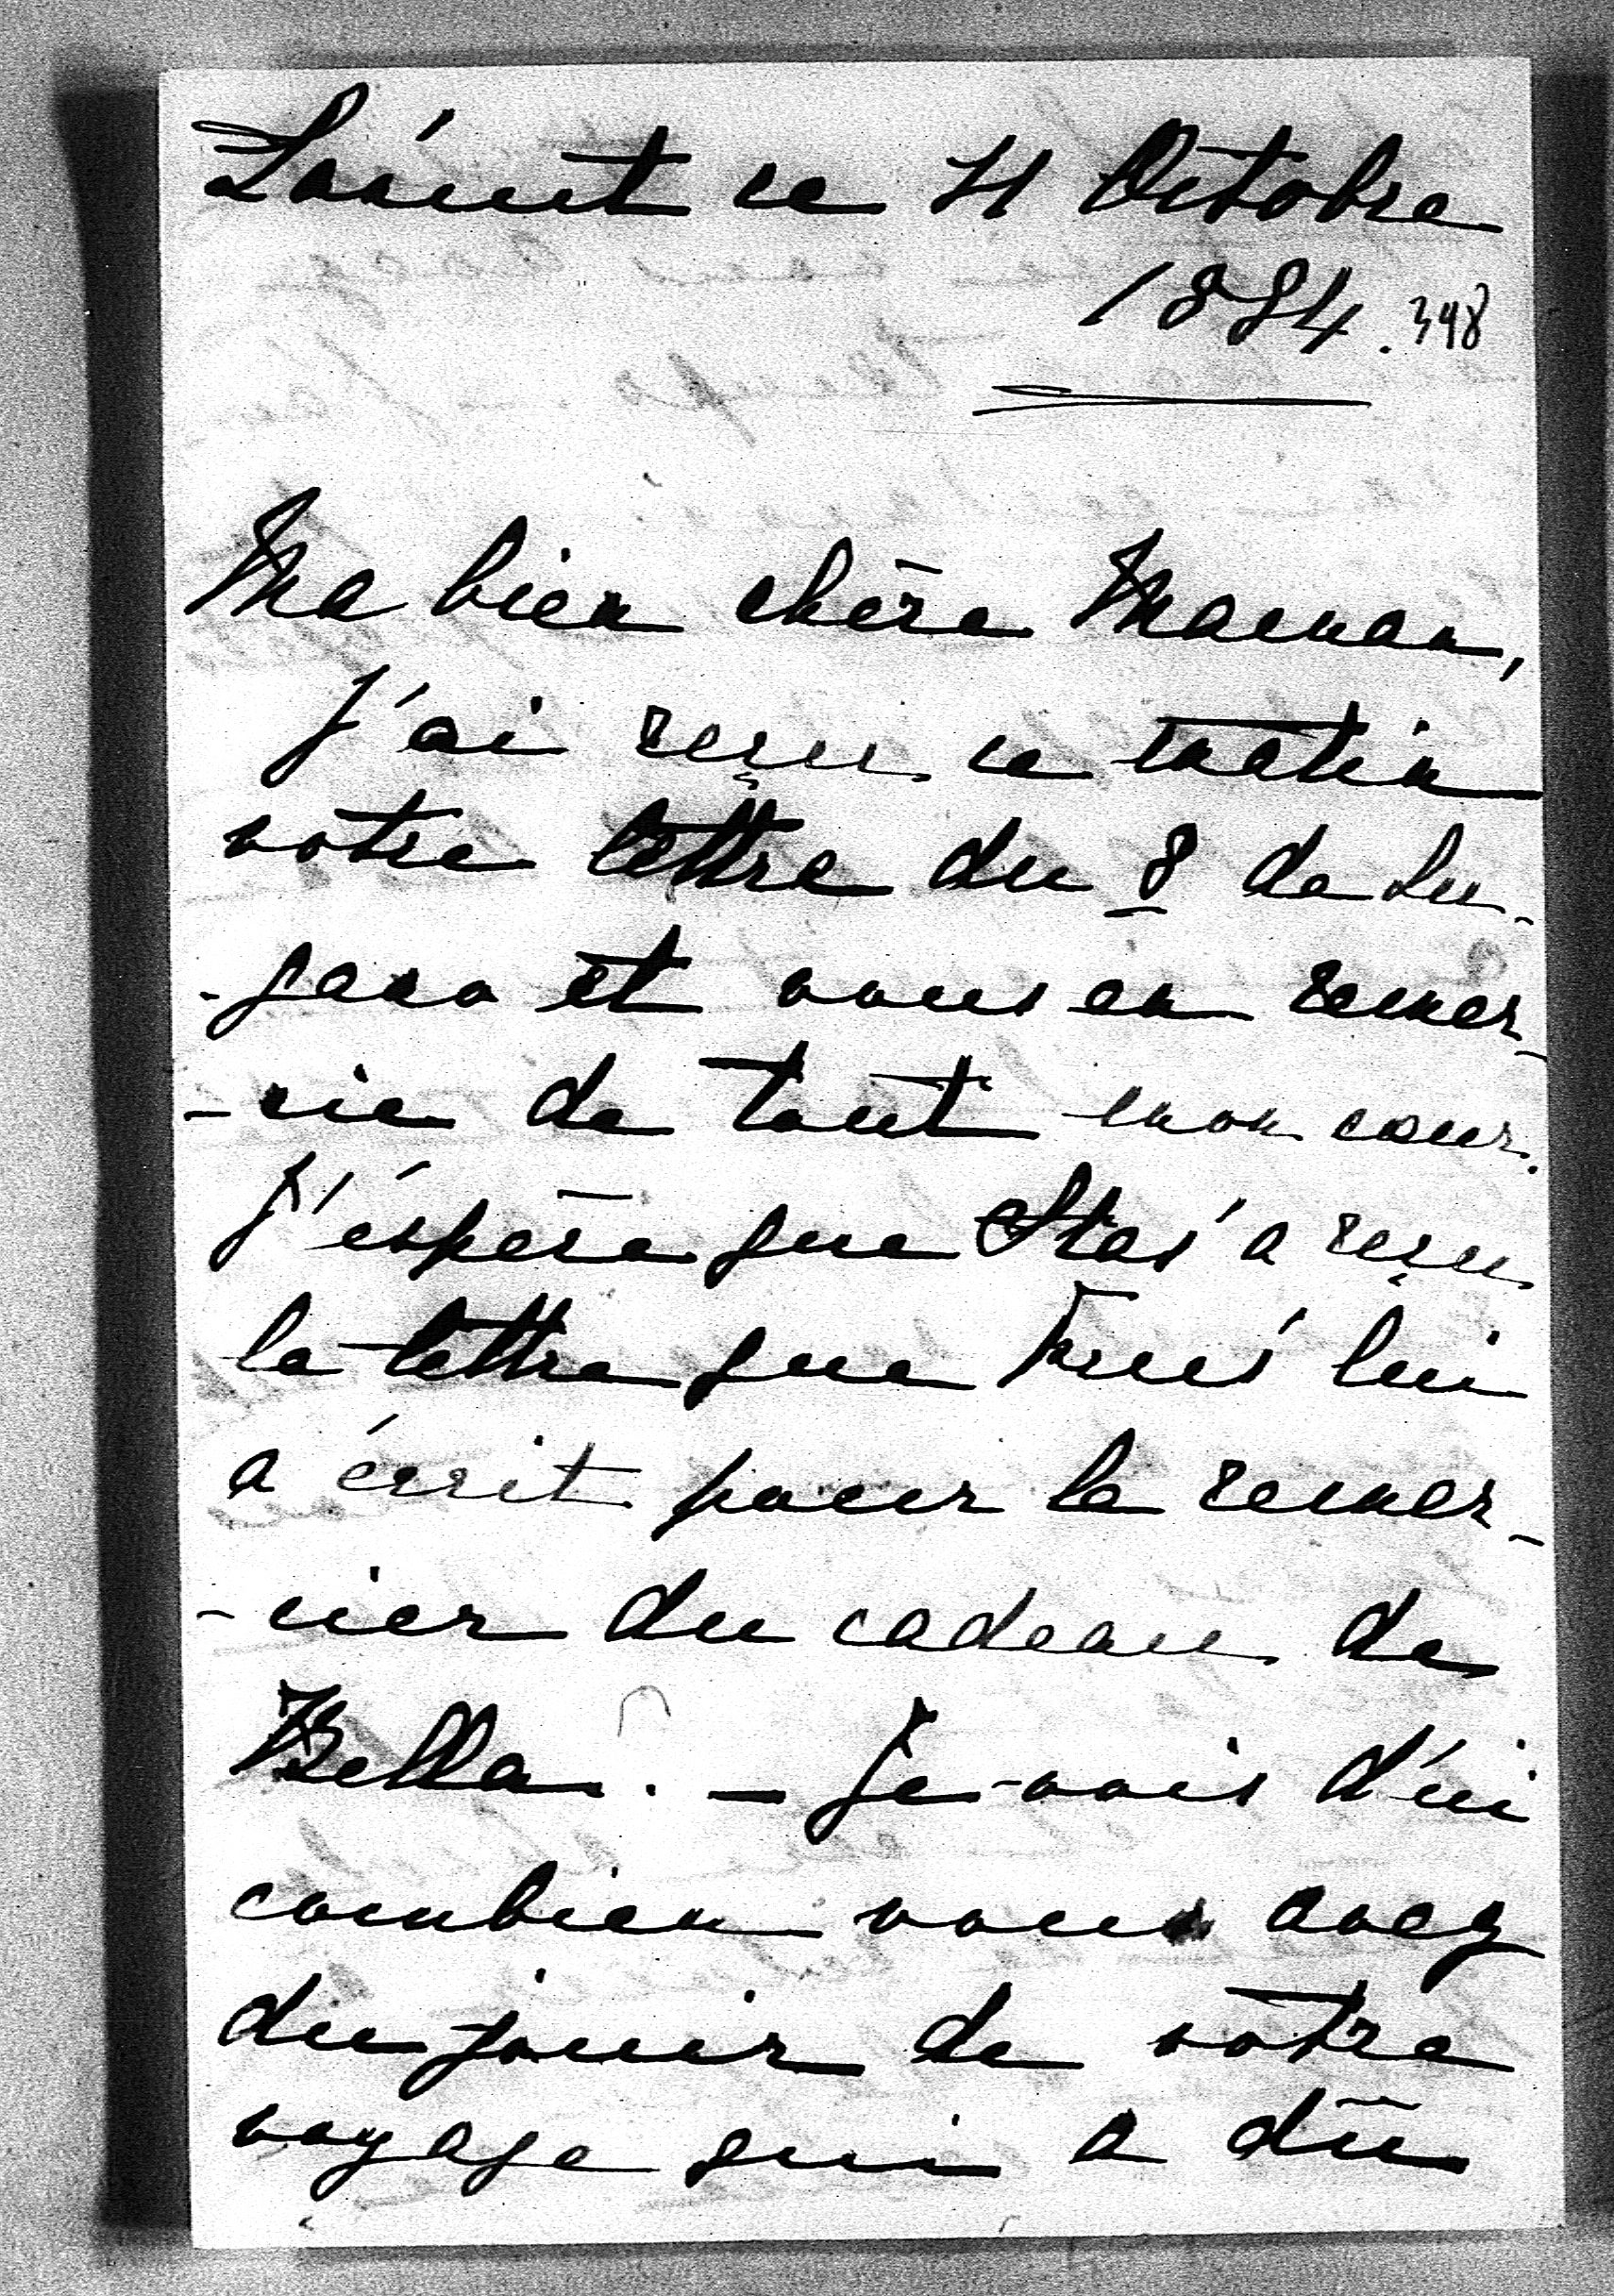 Łańcut ce 11 Octobre
1884. 398
Ma bien chère Maman,
J'ai reçu ce matin
votre lettre du 8 de Lu-
-gano et vous en remer-
-cie de tout mon cœur.
J'éspère que Staś a reçu
la lettre que
lui
a écrit pour le remer-
-cier du cadeau de
Bella. – Je vois d'ici
combien vous avez
du jouir de votre
voyage qui a dû